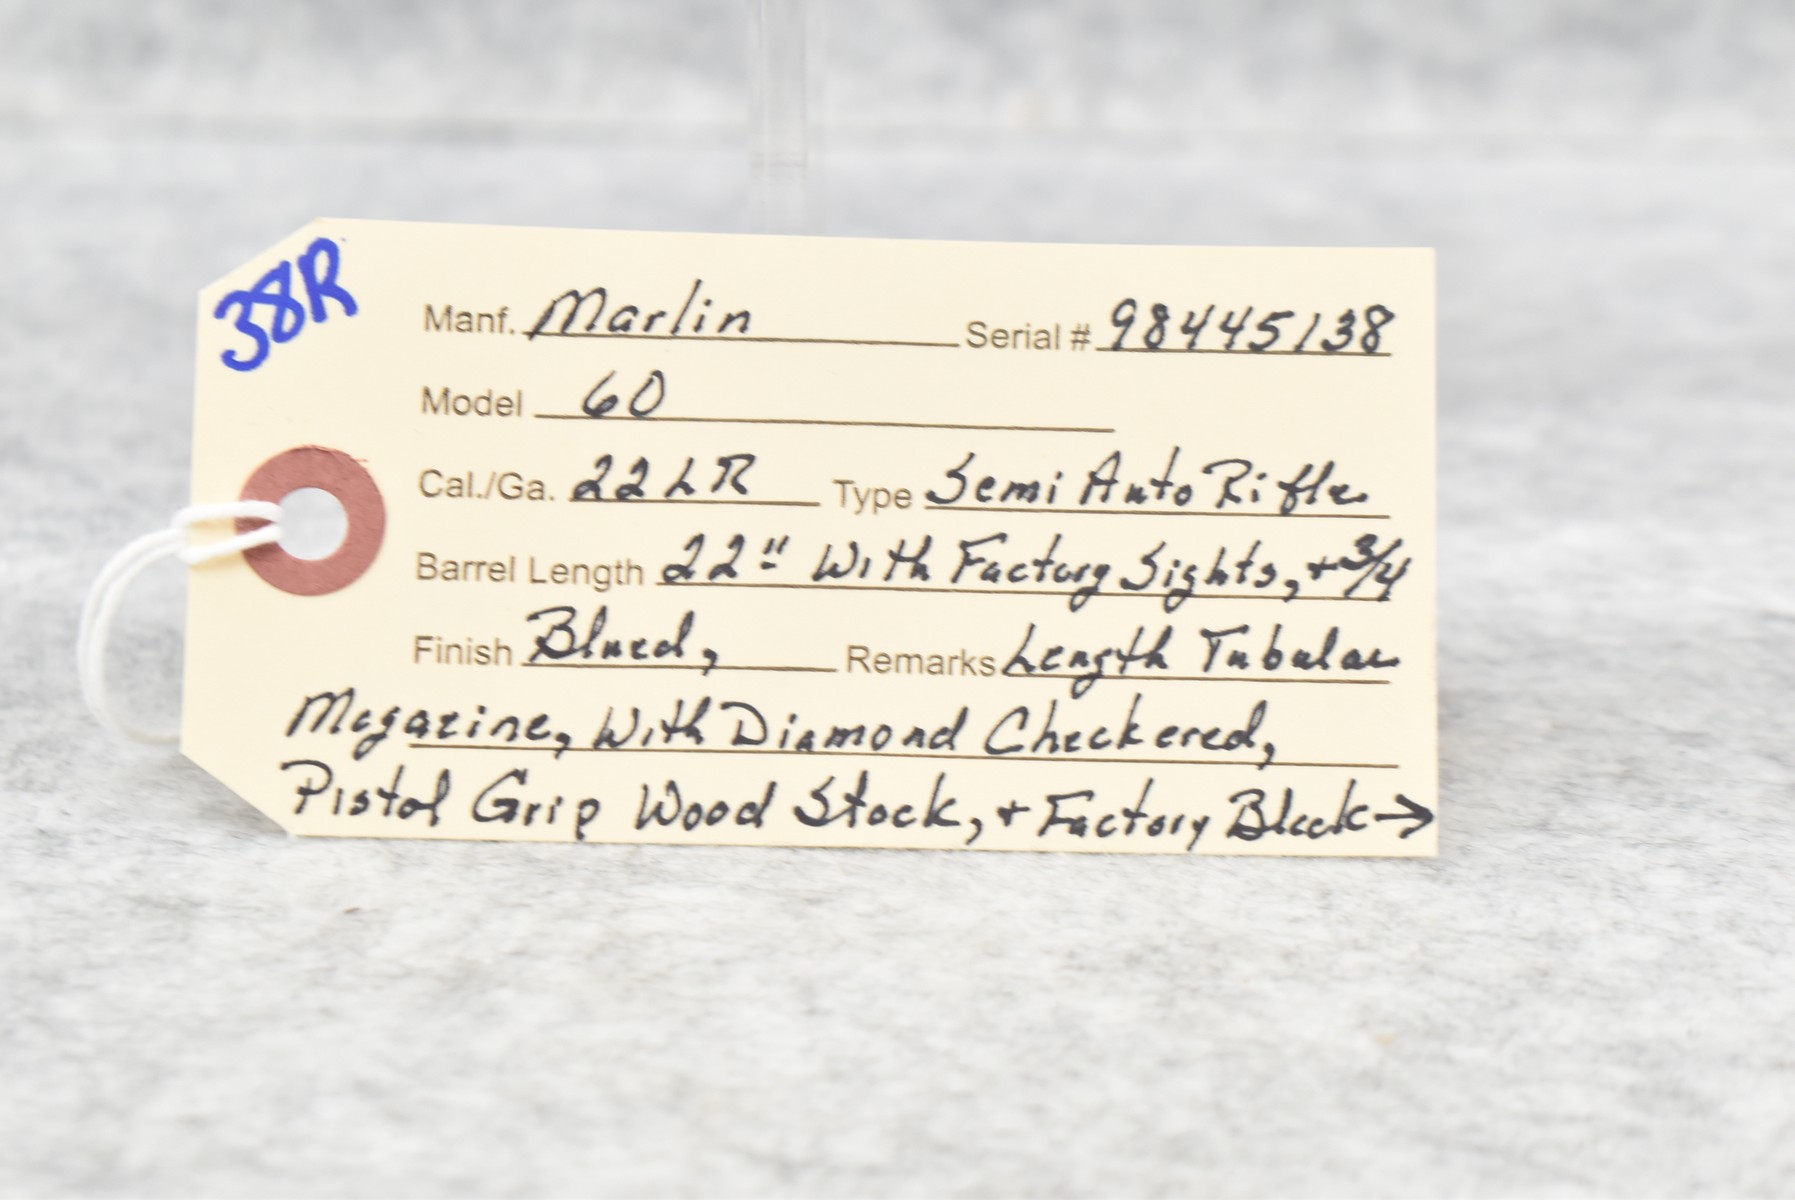 38R
Manf. Marlin Serial # 98445138
Model 60
Cal./Ga. 22LR Type Semi Auto Rifle
Barrel Length 22" With Factory Sights, + 3/4
Finish Blued, Remarks Length Tubular
Magazine, With Diamond Checkered,
Pistol Grip Wood Stock, + Factory Black →